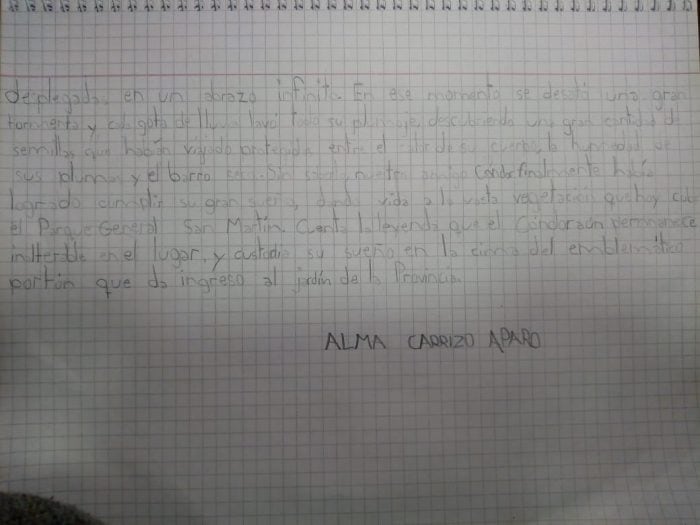 desplegadas en un abrazo infinito. En ese momento se desató una gran
tormenta y cada gota de lluvia lavó todo su plumaje, descubriendo una gran cantidad de
semillas que habían viajado protegidas entre el calor de su cuerpo, la humedad de
sus plumas y el barro seco. Sin saberlo nuestro amigo Cóndor finalmente había
logrado cumplir su gran sueño, dando vida a la vasta vegetación que hoy cubre
el Parque General San Martín. Cuenta la leyenda que el Cóndor aún permanece
inalterable en el lugar, y custodia su sueño en la cima del emblemático
portón que da ingreso al jardín de la Provincia.
ALMA CARRIZO APARO